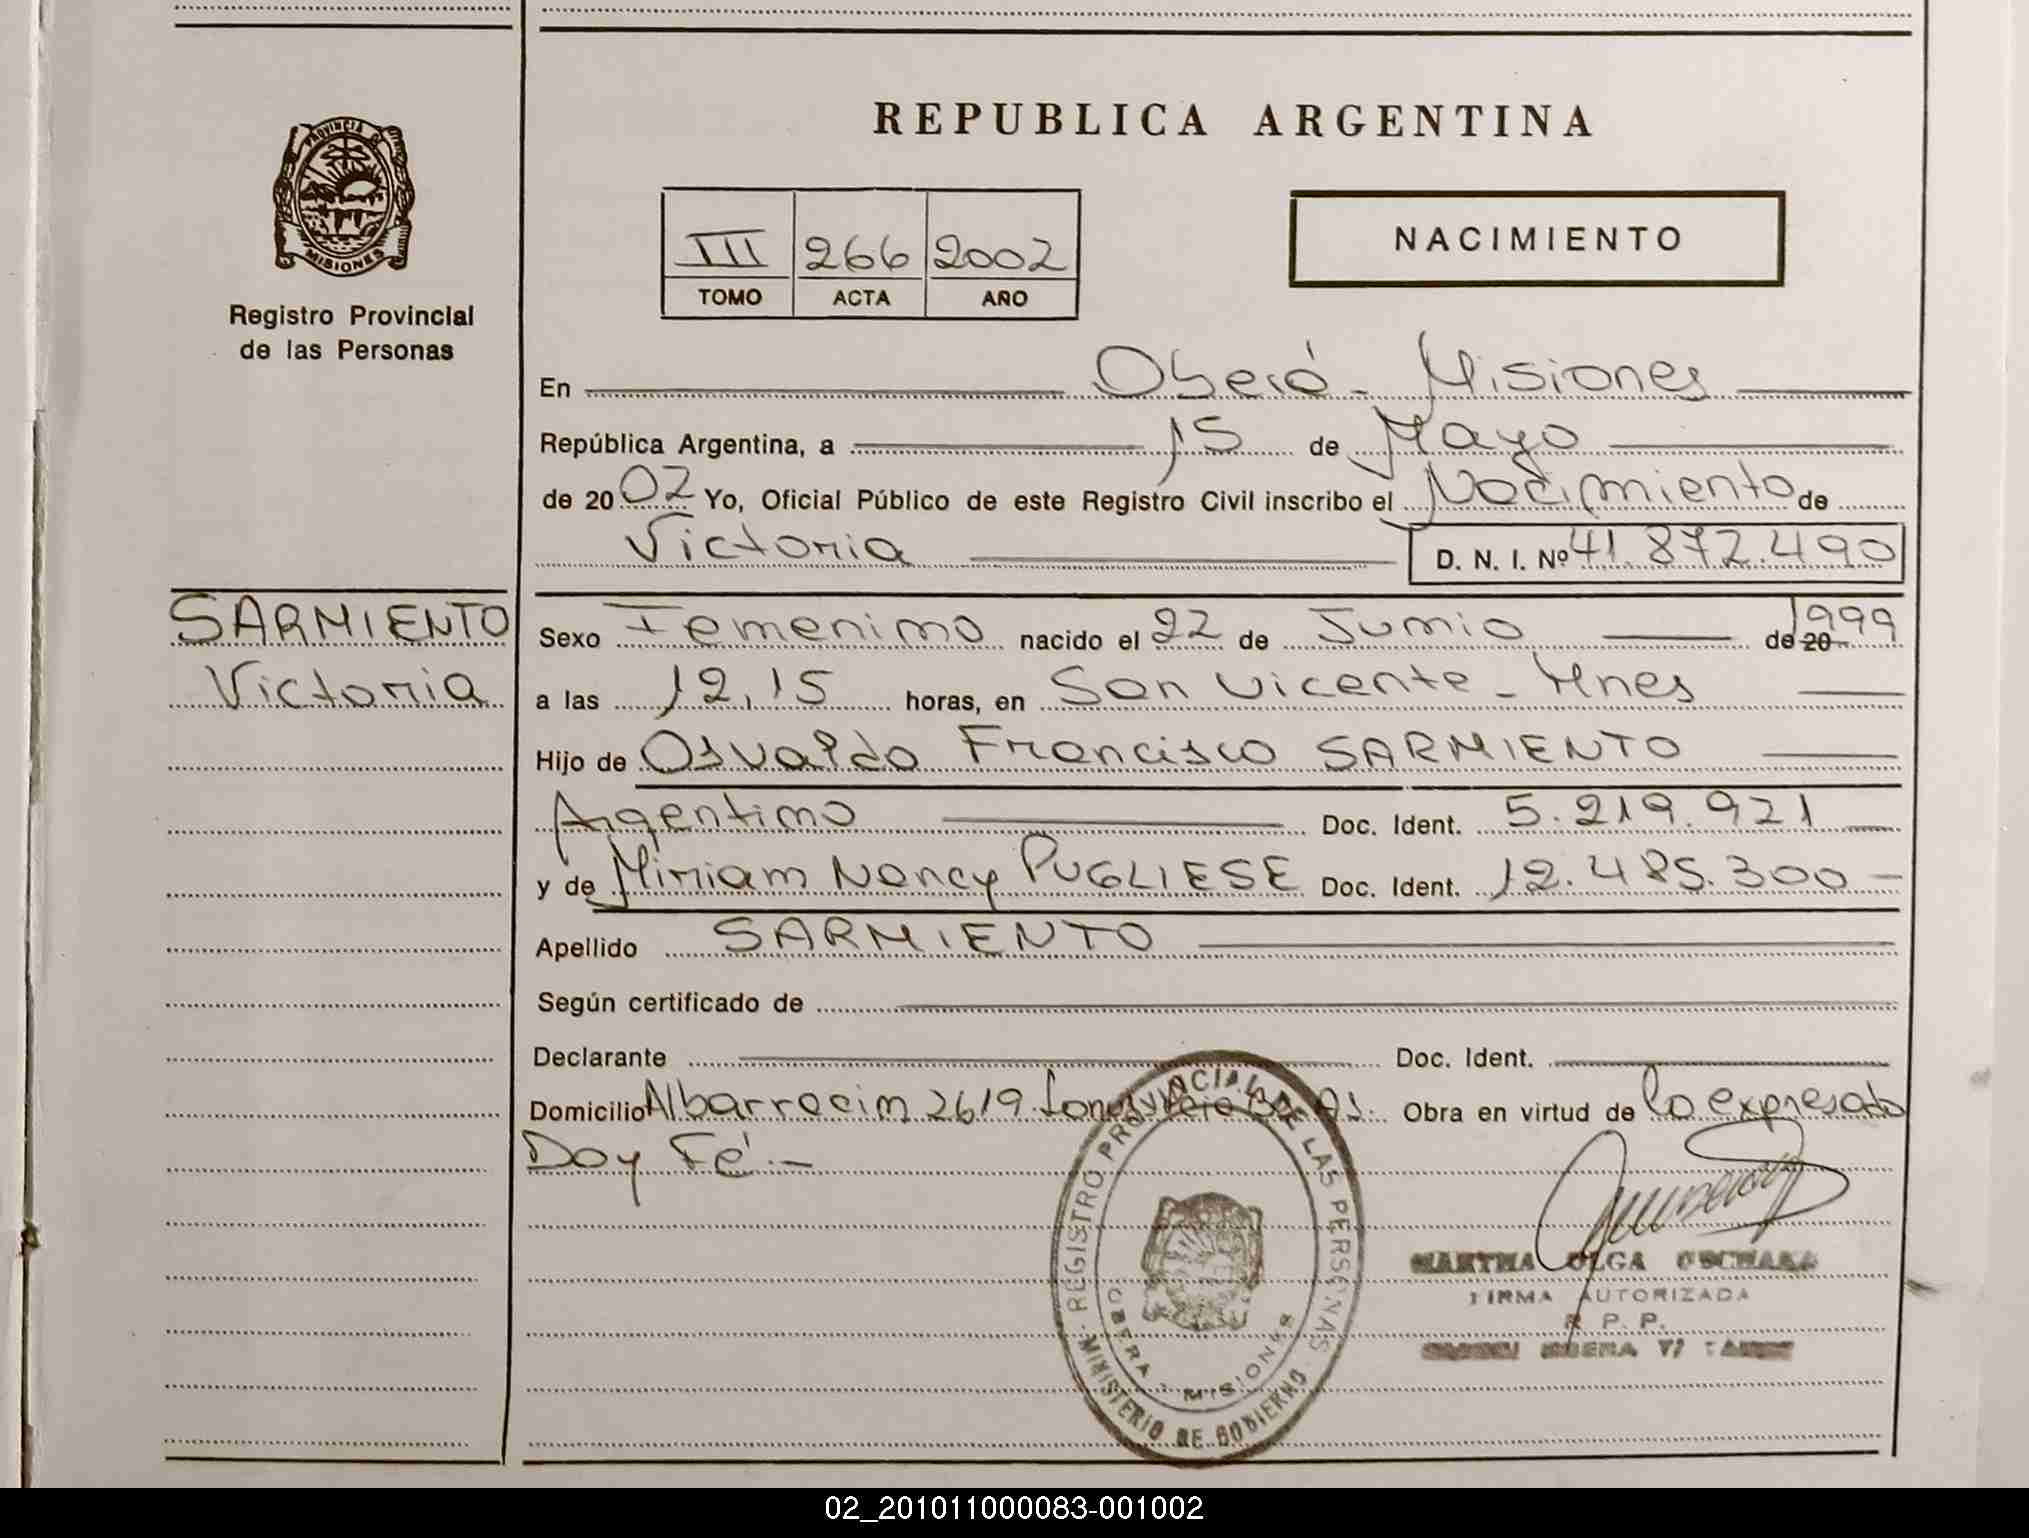 REPUBLICA ARGENTINA
PROVINCIA DE
MISIONES
Registro Provincial
de las Personas
III 266 2002
TOMO ACTA AÑO
NACIMIENTO
En Oberá - Misiones
República Argentina, a 15 de Mayo
de 2002 Yo, Oficial Público de este Registro Civil inscribo el Nacimiento de
Victoria D. N. I. Nº 41.872.490
SARMIENTO
Victoria
Sexo Femenino nacido el 22 de Junio de 20 1999
a las 12,15 horas, en San Vicente - Mnes
Hijo de Osvaldo Francisco SARMIENTO
Argentino Doc. Ident. 5.219.921
y de Miriam Nancy PUGLIESE Doc. Ident. 12.485.300
Apellido SARMIENTO
Según certificado de
Declarante Doc. Ident.
Domicilio Albarracin 2619 Bs. As. Obra en virtud de lo expresado
Doy Fé.-
REGISTRO PROVINCIAL DE LAS PERSONAS
MINISTERIO DE GOBIERNO
OBERA - MISIONES
MARTHA OLGA
FIRMA AUTORIZADA
R. P. P.
OBERA
02_201011000083-001002